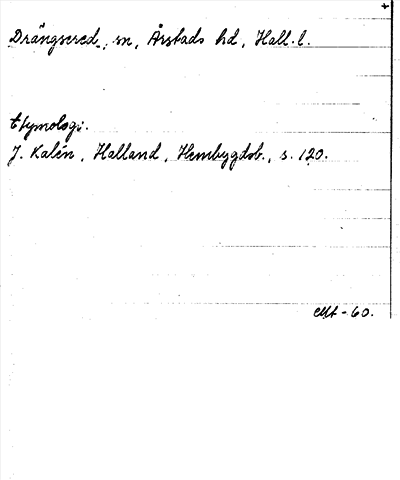 +
Drängsered, sn, Årstads hd, Hall. l.
Etymologi.
J. Kalén, Halland, Hembygdsb., s. 120.
-60.